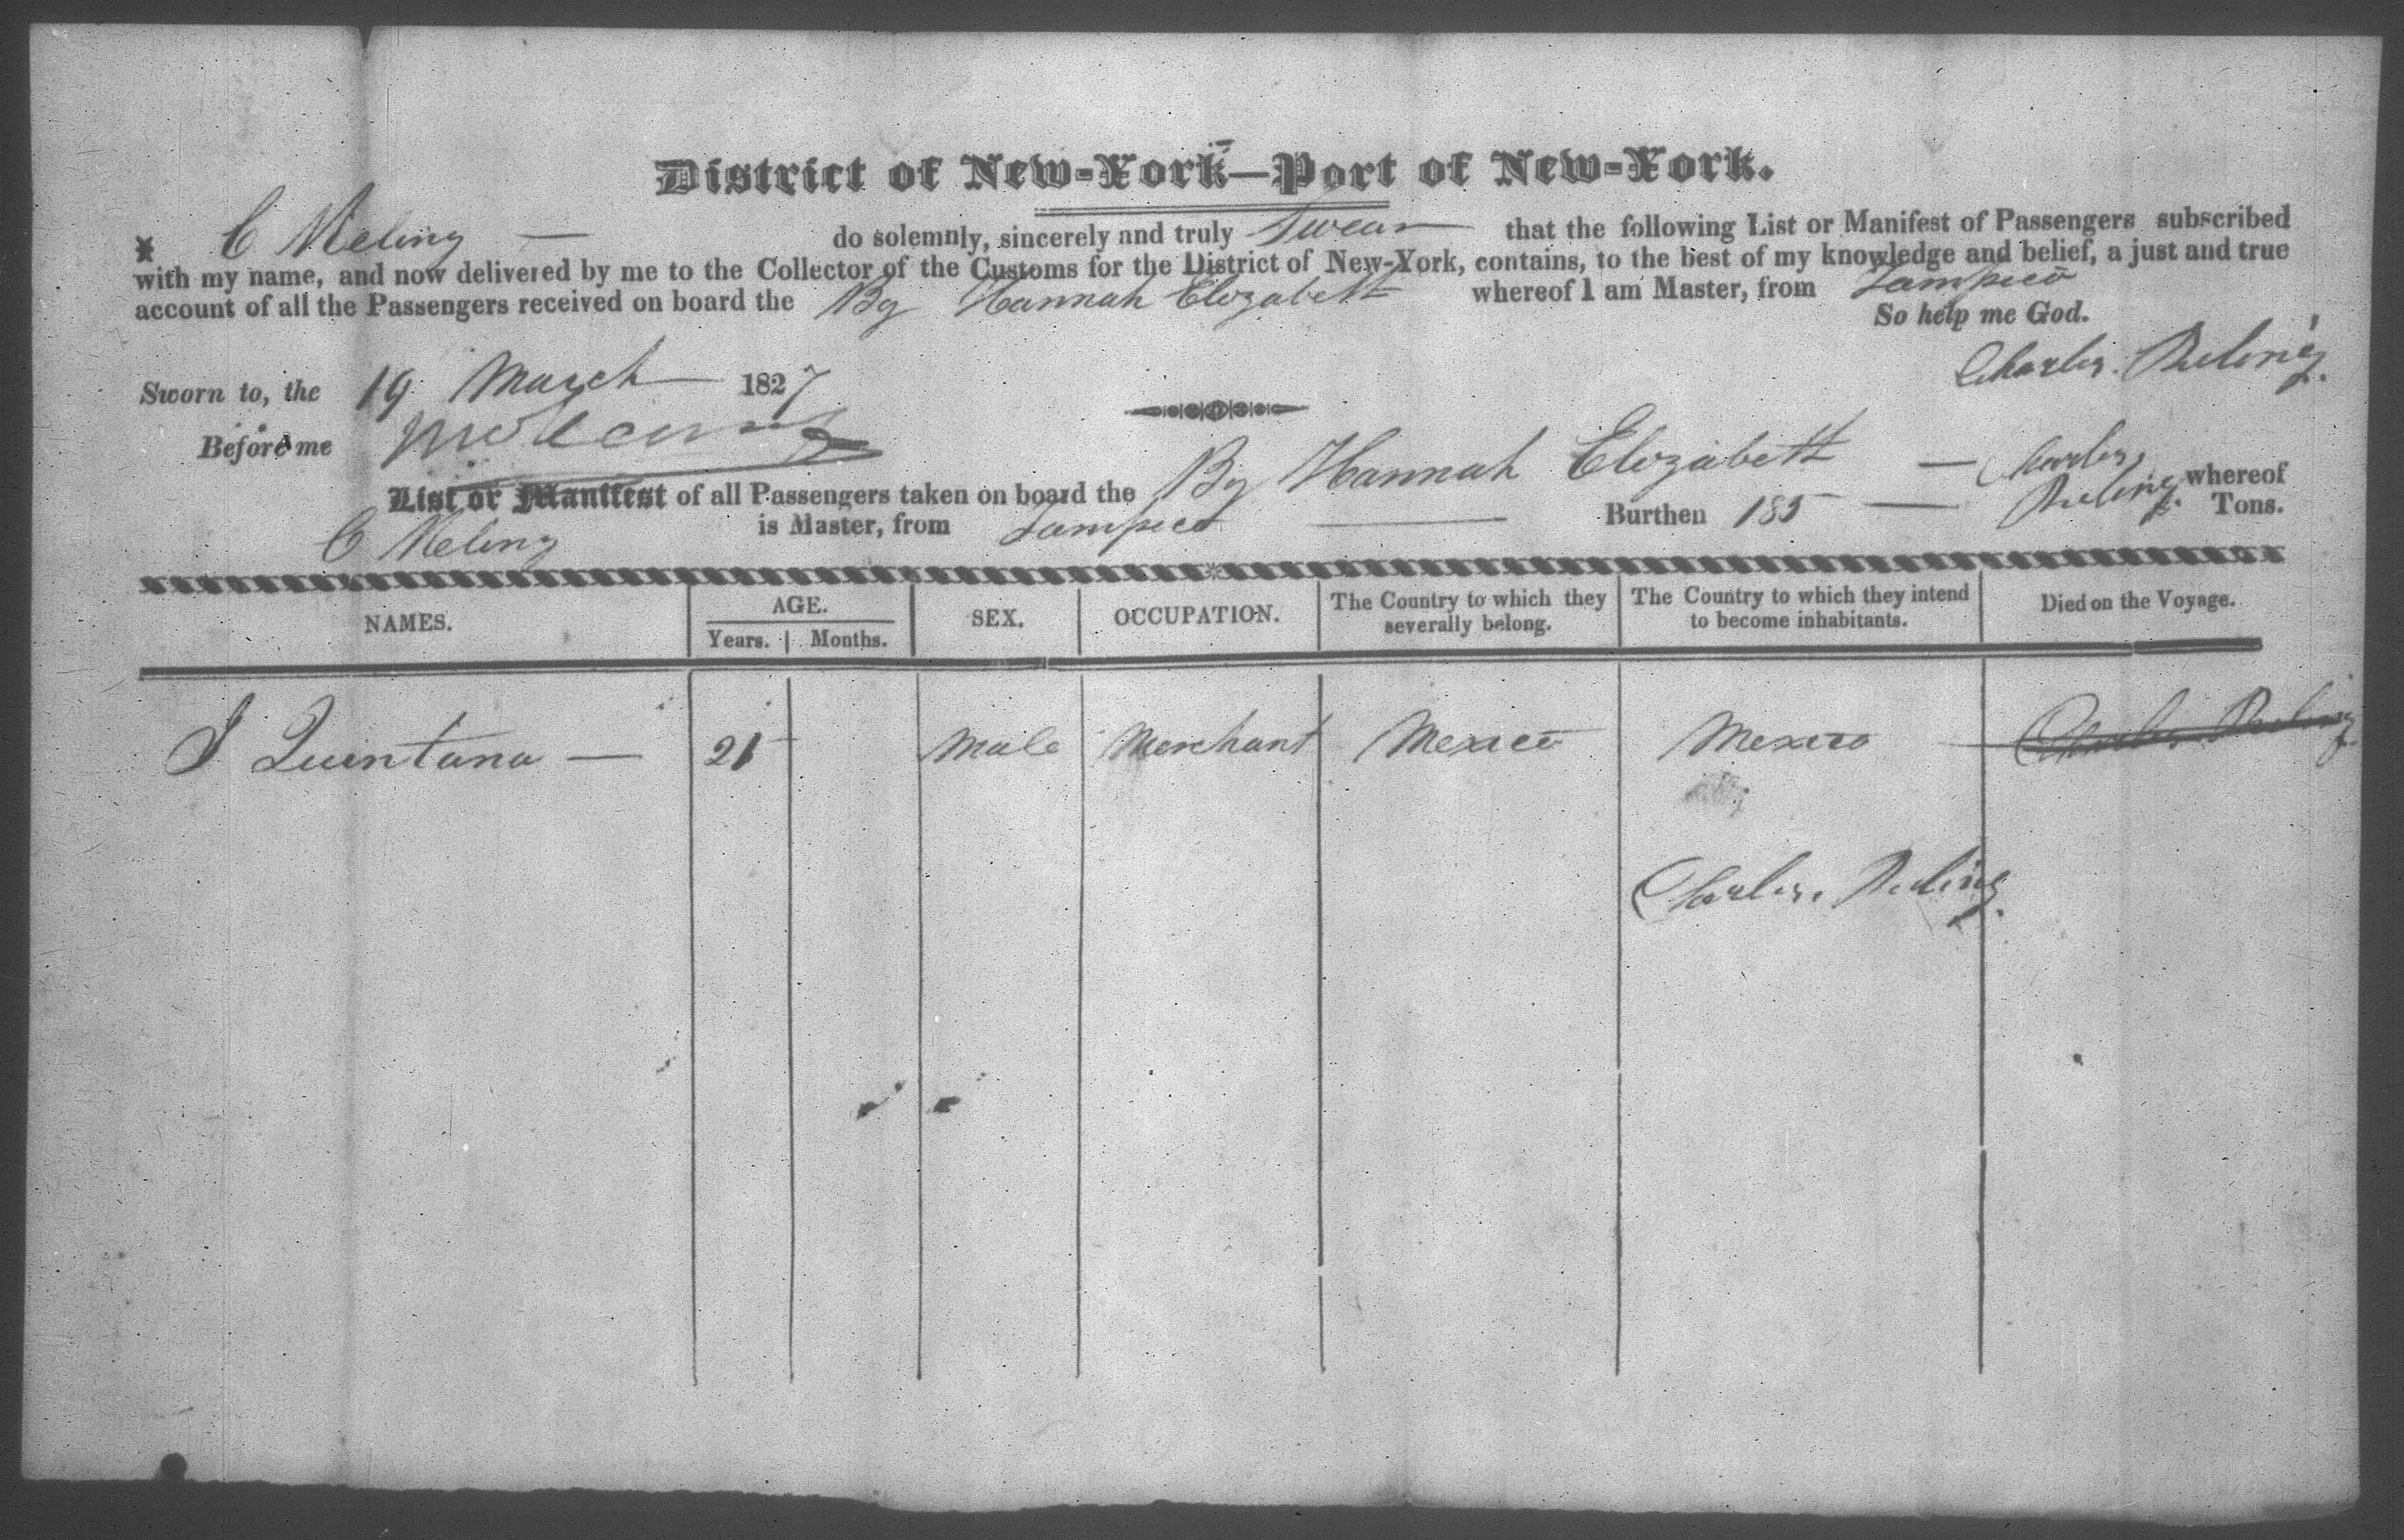 District of New-York—Port of New-York.
I C Meling — do solemnly, sincerely and truly Swear that the following List or Manifest of Passengers subscribed
with my name, and now delivered by me to the Collector of the Customs for the District of New-York, contains, to the best of my knowledge and belief, a just and true
account of all the Passengers received on board the Bg Hannah Elizabeth whereof I am Master, from Tampico
So help me God.
Charles
Sworn to, the 19 March 1827
Before me
List or Manifest of all Passengers taken on board the Bg Hannah Elizabeth — Charles whereof
C Meling is Master, from Tampico — Burthen 185 — Tons.
NAMES. AGE. SEX. OCCUPATION. The Country to which they severally belong. The Country to which they intend to become inhabitants. Died on the Voyage.
Years. Months.
J Quintana — 21 Male Merchant Mexico Mexico
Charles